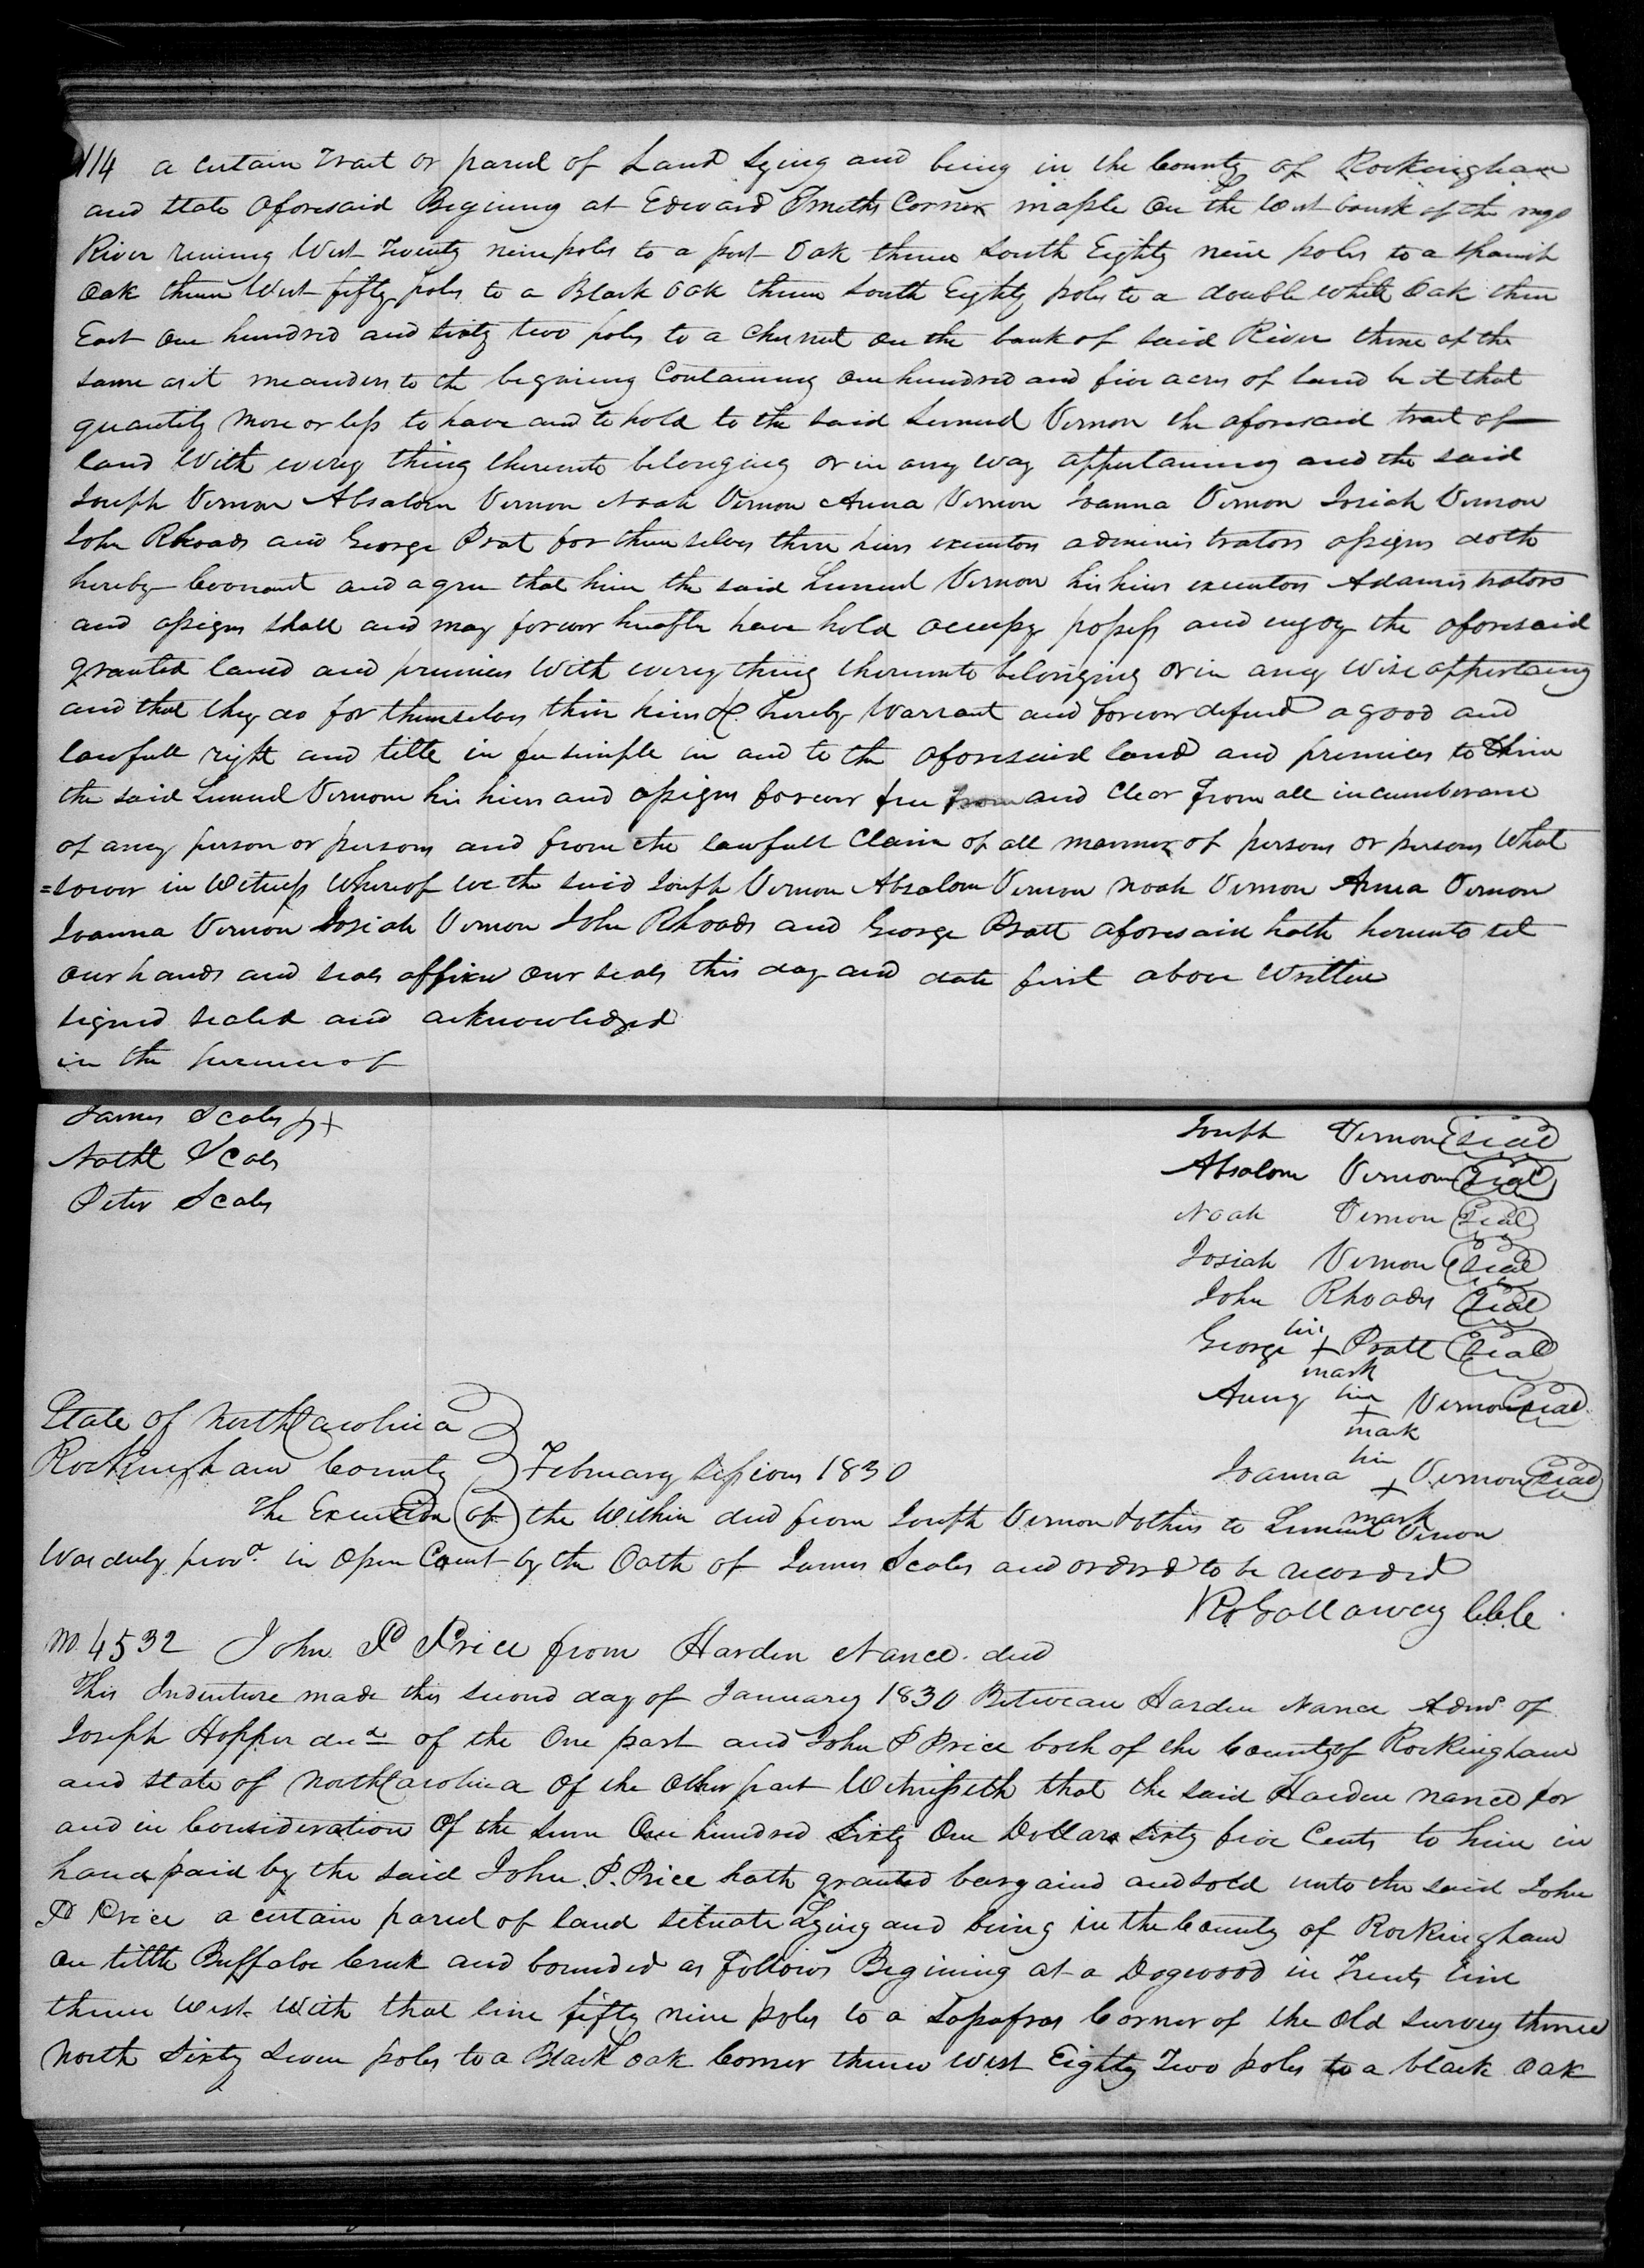 114 a certain Tract or parcel of Land Lying and being in the County of Rockingham
and State Aforesaid Begining at Edward Smeths Corner maple on the West bank of the mayo
River runing West Twenty nine poles to a post Oak thence South Eighty nine poles to a Spanish
Oak thence West fifty poles to a Black Oak thence South Eighty poles to a double white Oak thence
East One hundred and sixty two poles to a Chesnut on the bank of said River thence of the
same as it meanders to the begining Containing one hundred and five acres of land be it that
quantity More or less to have and to hold to the said Lemuel Vernon the aforesaid tract of
land With every thing thereunto belonging or in any way appertaining and the said
Joseph Vernon Absalom Vernon Noah Vernon Anna Vernon Joanna Vernon Josiah Vernon
John Rhoads and George Prat for themselves there heirs executors administrators assigns doth
hereby Covenant and agree that him the said Lemuel Vernon his heirs executors Adamistrators
and assigns shall and may forever hereafter have hold occupy possess and enjoy the aforesaid
granted land and premises With every thing thereunto belonging or in any Wise appertaing
and that they do for themselves their heirs &c hereby Warrant and forever defend a good and
lawfull right and title in fee simple in and to the aforesaid land and premises to him
the said Lemuel Vernon his heirs and assigns forever free from and Clear from all incumberance
of any person or persons and from the lawfull Claim of all manner of persons or persons What
=soever in Witness Whereof we the said Joseph Vernon Absalom Vernon Noah Vernon Anna Vernon
Joanna Vernon Josiah Vernon John Rhoads and George Pratt aforesaid hath hereunto set
our hands and seals affixed our seals this day and date first above Written
signed sealed and acknowledged
in the presence of
James Scales Jr+
Nathl Scales
Peter Scales
Joseph Vernon (seal)
Absalom Vernon (seal)
Noah Vernon (seal)
Josiah Vernon (seal)
John Rhoads (seal)
his
George + Pratt (seal)
mark
Anny her Vernon (seal)
+
mark
her
Joanna + Vernon (seal)
mark
State of North Carolina
Rockingham County } February Sessions 1830
The Execution of the Within deed from Joseph Vernon & others to Lemuel Vernon
Was duly provd in Open Court by the Oath of James Scales and ordered to be recorded
Ro Gallaway C.C.C.
No. 4532 John P Price from Harden Nance deed
This Indenture made this second day of January 1830 Between Harden Nance Admr of
Joseph Hopper decd of the One part and John P Price both of the County of Rockingham
and State of North Carolina Of the Other part Witnesseth that the said Harden Nance for
and in Consideration Of the Sum One hundred Sixty One Dollars Sixty five Cents to him in
hand paid by the said John P. Price hath granted bargaind and sold unto the said John
P Price a certain parcel of land situate Lying and being in the County of Rockingham
on little Buffaloe Creek and bounded as follows Begining at a Dogwood in Trents line
thence West With that line fifty nine poles to a Sassafras Corner of the Old Survey thence
North Sixty Seven poles to a Black Oak Corner thence West Eighty Two poles to a black Oak